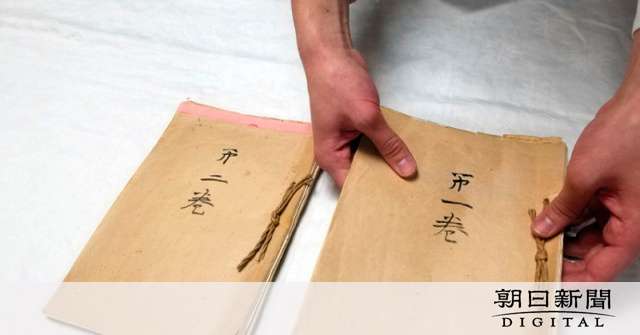 第一巻
第二巻
朝日新聞
DIGITAL